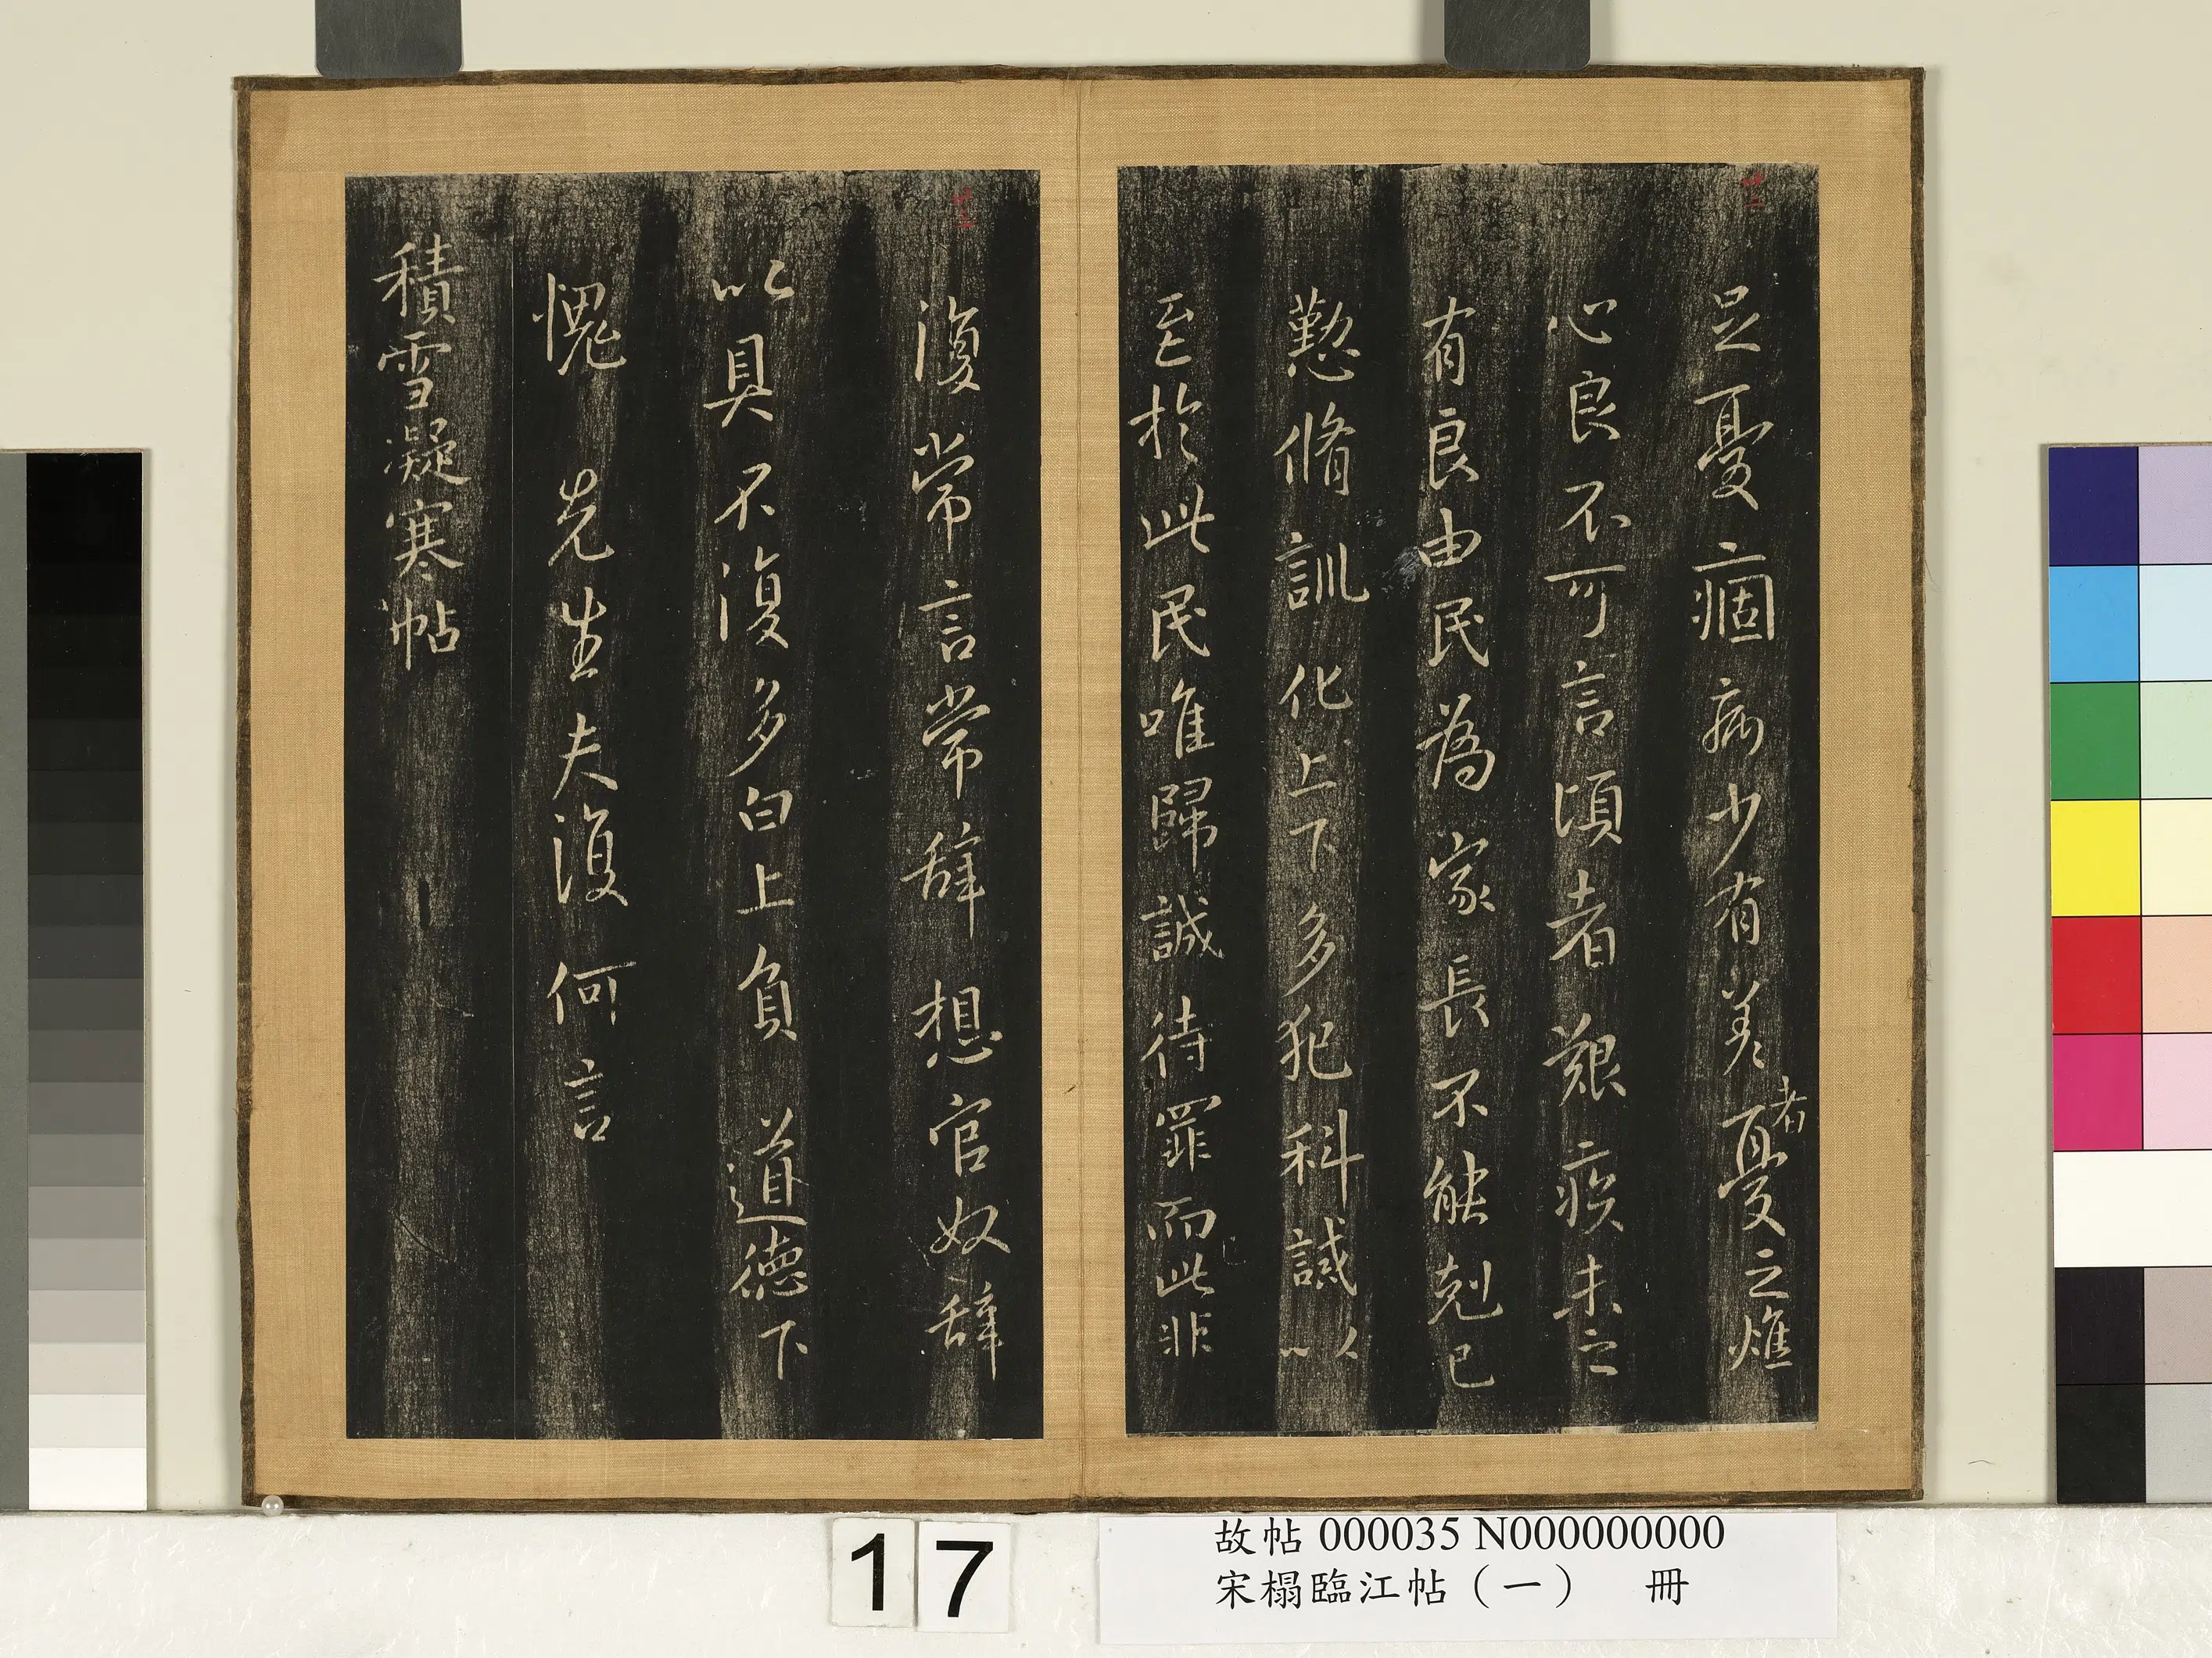 卅二
足憂痼病少有差者憂之燋
心良不可言頃者艱疾未之
有良由民為家長不能剋已
懃脩訓化上下多犯科誡以
至於此民唯歸誠待罪而已此非
卅三
復常言常辞想官奴辞
以具不復多白上負道德下
愧先生夫復何言
積雪凝寒帖
17
故帖 000035 N000000000
宋榻臨江帖（一） 冊